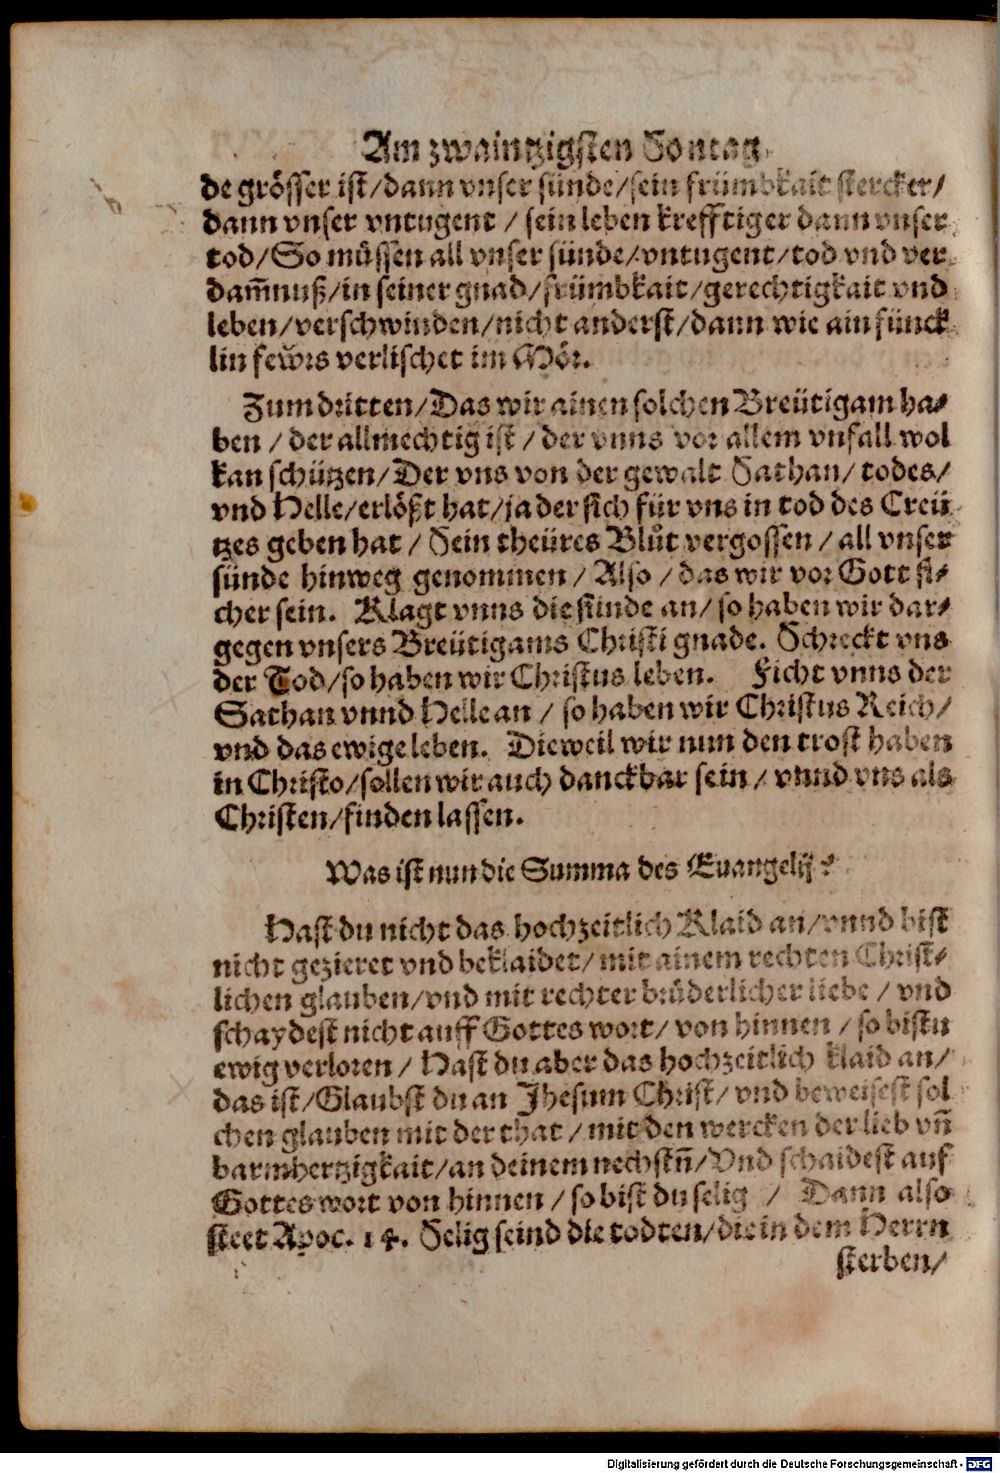 Am zwaintzigsten Sontag
de grösser ist/dann vnser sünde/sein frümbkait stercker/
dann vnser vntugent / sein leben krefftiger dann vnser
tod/So müssen all vnser sünde/vntugent/tod vnd ver
dam̄nuß/in seiner gnad/frümbkait/gerechtigkait vnd
leben/verschwinden/nicht anderst/dann wie ain fünck
lin feẅrs verlischet im Mör.
Zum dritten/Das wir ainen solchen Breütigam ha-
ben / der allmechtig ist / der vnns vor allem vnfall wol
kan schützen/Der vns von der gewalt Sathan/ todes/
vnd Helle/erlößt hat/ja der sich für vns in tod des Creü
tzes geben hat / Sein theüres Blůt vergossen / all vnser
sünde hinweg genommen / Also / das wir vor Gott si-
cher sein. Klagt vnns die sünde an/ so haben wir dar-
gegen vnsers Breütigams Christi gnade. Schreckt vns
der Tod/so haben wir Christus leben. Ficht vnns der
Sathan vnnd Helle an / so haben wir Christus Reich/
vnd das ewige leben. Dieweil wir nun den trost haben
in Christo/sollen wir auch danckbar sein / vnnd vns als
Christen/finden lassen.
Was ist nun die Summa des Euangelij?
Hast du nicht das hochzeitlich Klaid an/vnnd bist
nicht gezieret vnd beklaidet/mit ainem rechten Christ-
lichen glauben/vnd mit rechter brüderlicher liebe / vnd
schaydest nicht auff Gottes wort/ von hinnen / so bistu
ewig verloren / Hast du aber das hochzeitlich klaid an/
das ist/Glaubst du an Jhesum Christ/ vnd beweisest sol
chen glauben mit der that / mit den wercken der lieb vn̄
barmhertzigkait/an deinem nechstn̄/Vnd schaidest auf
Gottes wort von hinnen / so bist du selig / Dann also
steet Apoc. 14. Selig seind die todten/die in dem Herrn
sterben/
Digitalisierung gefördert durch die Deutsche Forschungsgemeinschaft - DFG